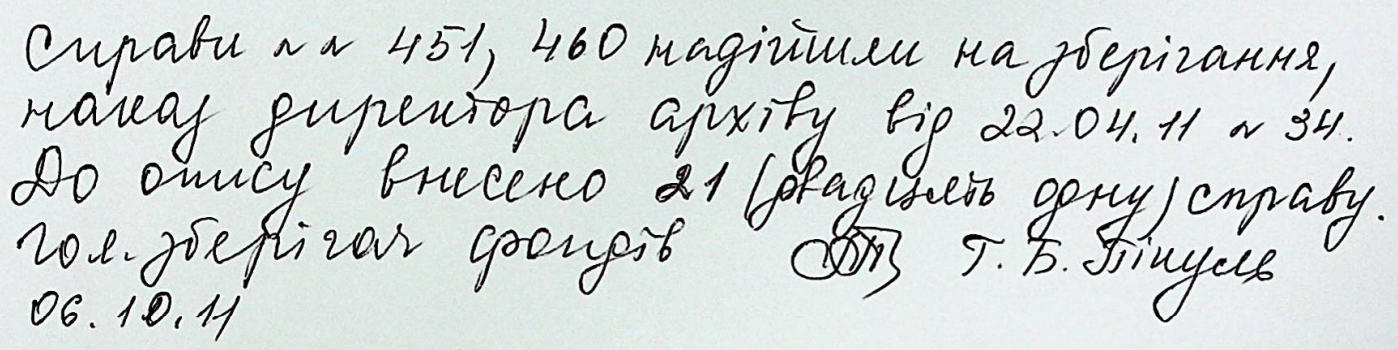 Справи ~ ~ 451, 460 надійшли на зберігання,
наказ директора архіву від 22.04.11 ~ 34.
До опису внесено 21 (двадцять одну) справу.
Гол. зберігач фондів Т. Б. Пікуль
06.10.11